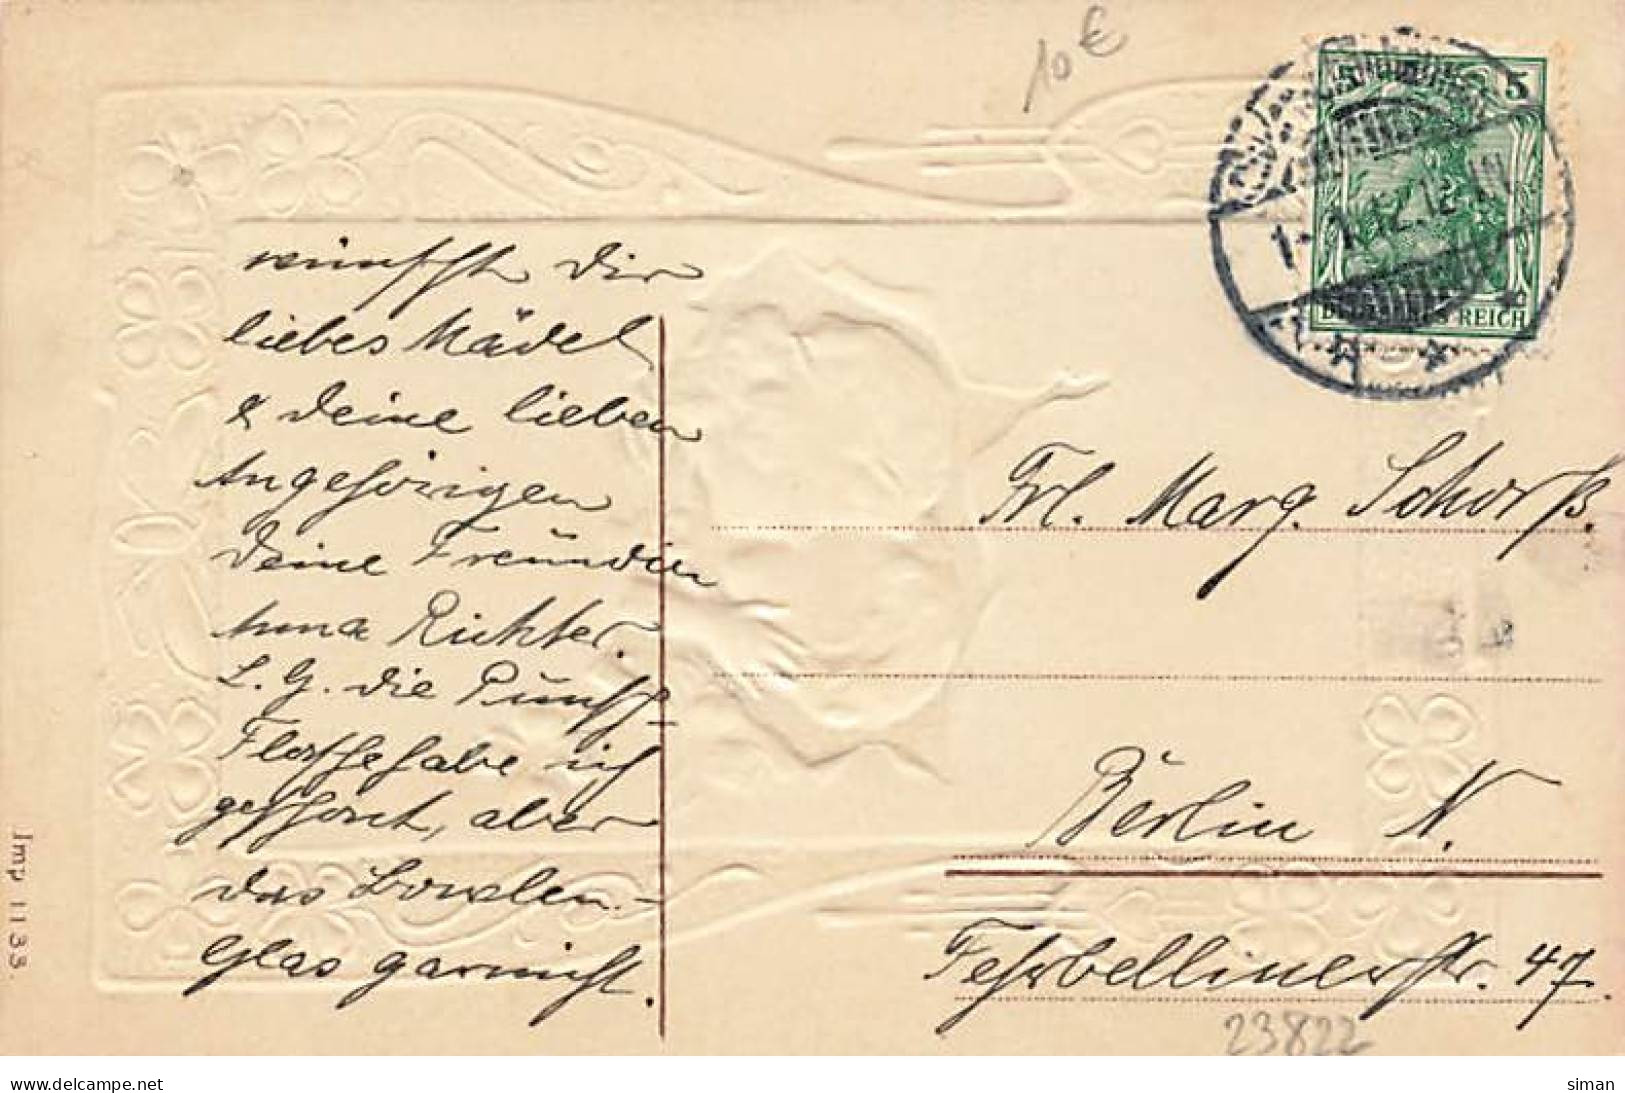 10 €
5 5
1.1.12.12-1N
DEUTSCHES REICH
wünscht Dir
liebes Mädel
& Deine lieben
Angehörigen
Deine Freundin
Anna Richter.
L. G. die Punsch-
Flasche habe ich
geschont, aber
das Bowlen-
Glas garnicht.
Frl. Marg. Schorß.
Berlin N.
Fehrbellinerstr. 47.
23822
Imp 1133.
www.delcampe.net
siman